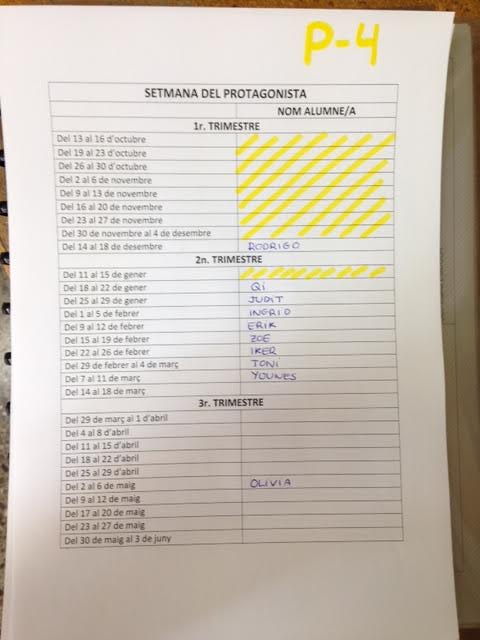 P-4
SETMANA DEL PROTAGONISTA
NOM ALUMNE/A
1r. TRIMESTRE
Del 13 al 16 d'octubre
Del 19 al 23 d'octubre
Del 26 al 30 d'octubre
Del 2 al 6 de novembre
Del 9 al 13 de novembre
Del 16 al 20 de novembre
Del 23 al 27 de novembre
Del 30 de novembre al 4 de desembre
Del 14 al 18 de desembre RODRIGO
2n. TRIMESTRE
Del 11 al 15 de gener
Del 18 al 22 de gener QI
Del 25 al 29 de gener JUDIT
Del 1 al 5 de febrer INGRID
Del 9 al 12 de febrer ERIK
Del 15 al 19 de febrer ZOE
Del 22 al 26 de febrer IKER
Del 29 de febrer al 4 de març TONI
Del 7 al 11 de març YOUNES
Del 14 al 18 de març
3r. TRIMESTRE
Del 29 de març al 1 d'abril
Del 4 al 8 d'abril
Del 11 al 15 d'abril
Del 18 al 22 d'abril
Del 25 al 29 d'abril
Del 2 al 6 de maig OLIVIA
Del 9 al 12 de maig
Del 17 al 20 de maig
Del 23 al 27 de maig
Del 30 de maig al 3 de juny